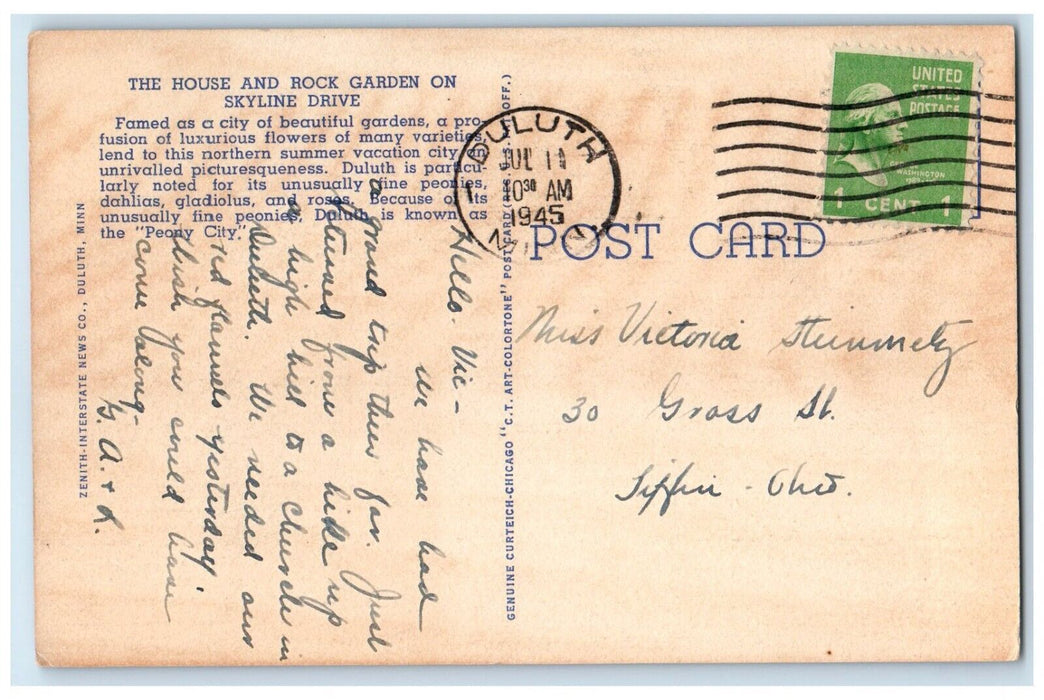 THE HOUSE AND ROCK GARDEN ON
SKYLINE DRIVE
Famed as a city of beautiful gardens, a pro-
fusion of luxurious flowers of many varieties,
lend to this northern summer vacation city an
unrivalled picturesqueness. Duluth is particu-
larly noted for its unusually fine peonies,
dahlias, gladiolus, and roses. Because of its
unusually fine peonies, Duluth is known as
the "Peony City."
ZENITH-INTERSTATE NEWS CO., DULUTH, MINN
Hello. Vic-
we have had
a grand trip thus far. Just
returned from a hike up
a high hill to a church in
Duluth. We needed our
red flannels yesterday.
Wish you could have
come along-
G. A. + L.
GENUINE CURTEICH-CHICAGO "C.T. ART-COLORTONE" POST CARD OFF.)
DULUTH
JUL 11
10 30 AM
1945
UNITED
STATES
POSTAGE
WASHINGTON
1 CENT 1
POST CARD
Miss Victoria Steinmetz
30 Gross St.
Tiffin - Ohio.